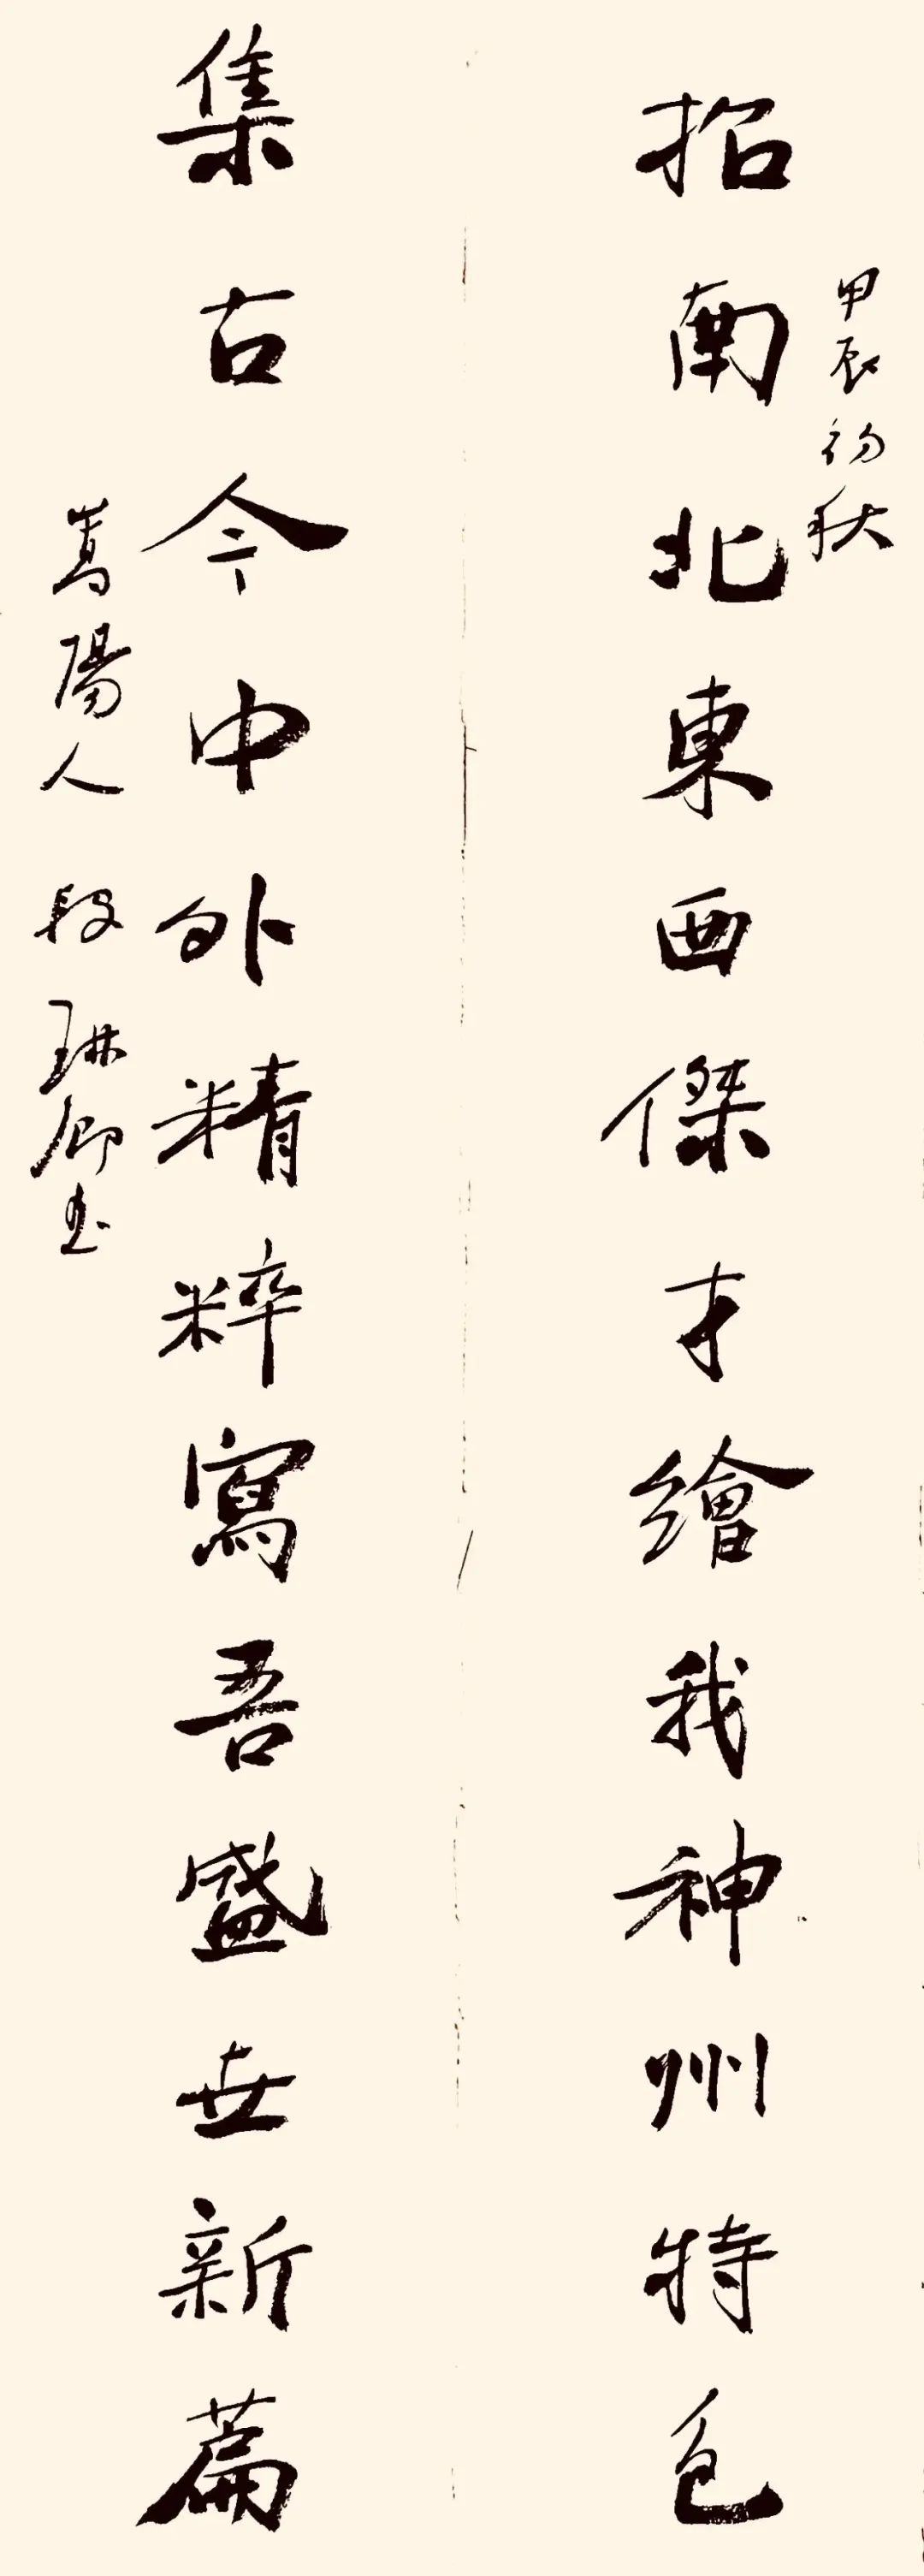 甲辰初秋
招南北東西傑才繪我神州特色
集古今中外精粹寫吾盛世新篇
嵩陽人 段琳卿书